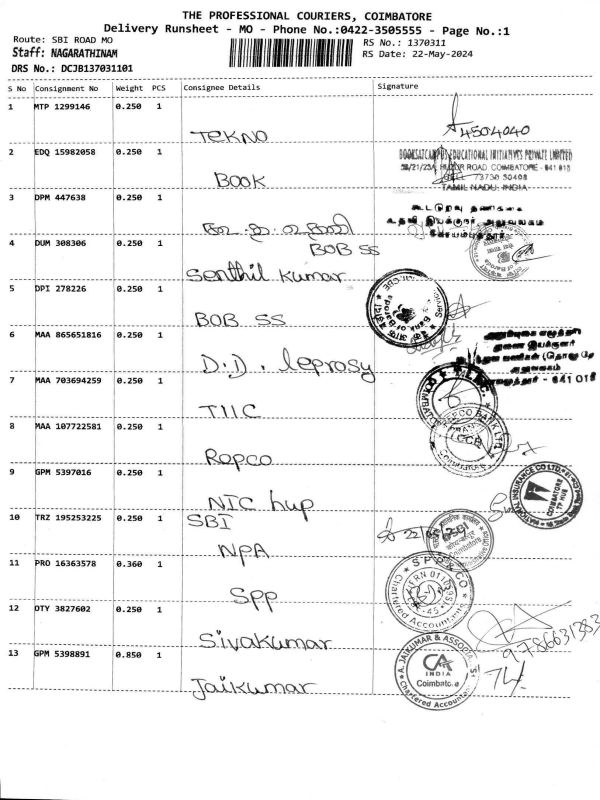 THE PROFESSIONAL COURIERS, COIMBATORE
Delivery Runsheet - MO - Phone No.:0422-3505555 - Page No.:1
Route: SBI ROAD MO
RS No.: 1370311
Staff: NAGARATHINAM
RS Date: 22-May-2024
DRS No.: DCJB137031101
S No Consignment No Weight PCS Consignee Details Signature
1 MTP 1299146 0.250 1
TEKNO
4504040
2 EDQ 15982058 0.250 1
BOOKSATCAMPUS EDUCATIONAL INITIATIVES PRIVATE LIMITED
HUZUR ROAD, COIMBATORE - 641 018
TAMIL NADU, INDIA
BOOK
3 DPM 447638 0.250 1
கூட்டுறவு தணிக்கை
உதவி இயக்குநர் அலுவலகம்
கோயம்புத்தூர்
4 DUM 308306 0.250 1
BOB SS
Senthil kumar
5 DPI 278226 0.250 1
BOB SS
Bank of Baroda
6 MAA 865651816 0.250 1
துணை இயக்குநர்
அலுவலகம்
641 018
D.D. leprosy
7 MAA 703694259 0.250 1
TIIC
8 MAA 107722581 0.250 1
Repco
REPCO BANK LTD
9 GPM 5397016 0.250 1
NIC hup
NATIONAL INSURANCE CO LTD
COIMBATORE
10 TRZ 195253225 0.250 1
SBI
NPA
22/05
Coimbatore
11 PRO 16363578 0.360 1
SPP
SPP & CO
Chartered Accountants
12 OTY 3827602 0.250 1
Sivakumar
9786631383
13 GPM 5398891 0.850 1
Jaikumar
A. JAIKUMAR & ASSOCIATES
CA
INDIA
Coimbatore
Chartered Accountants